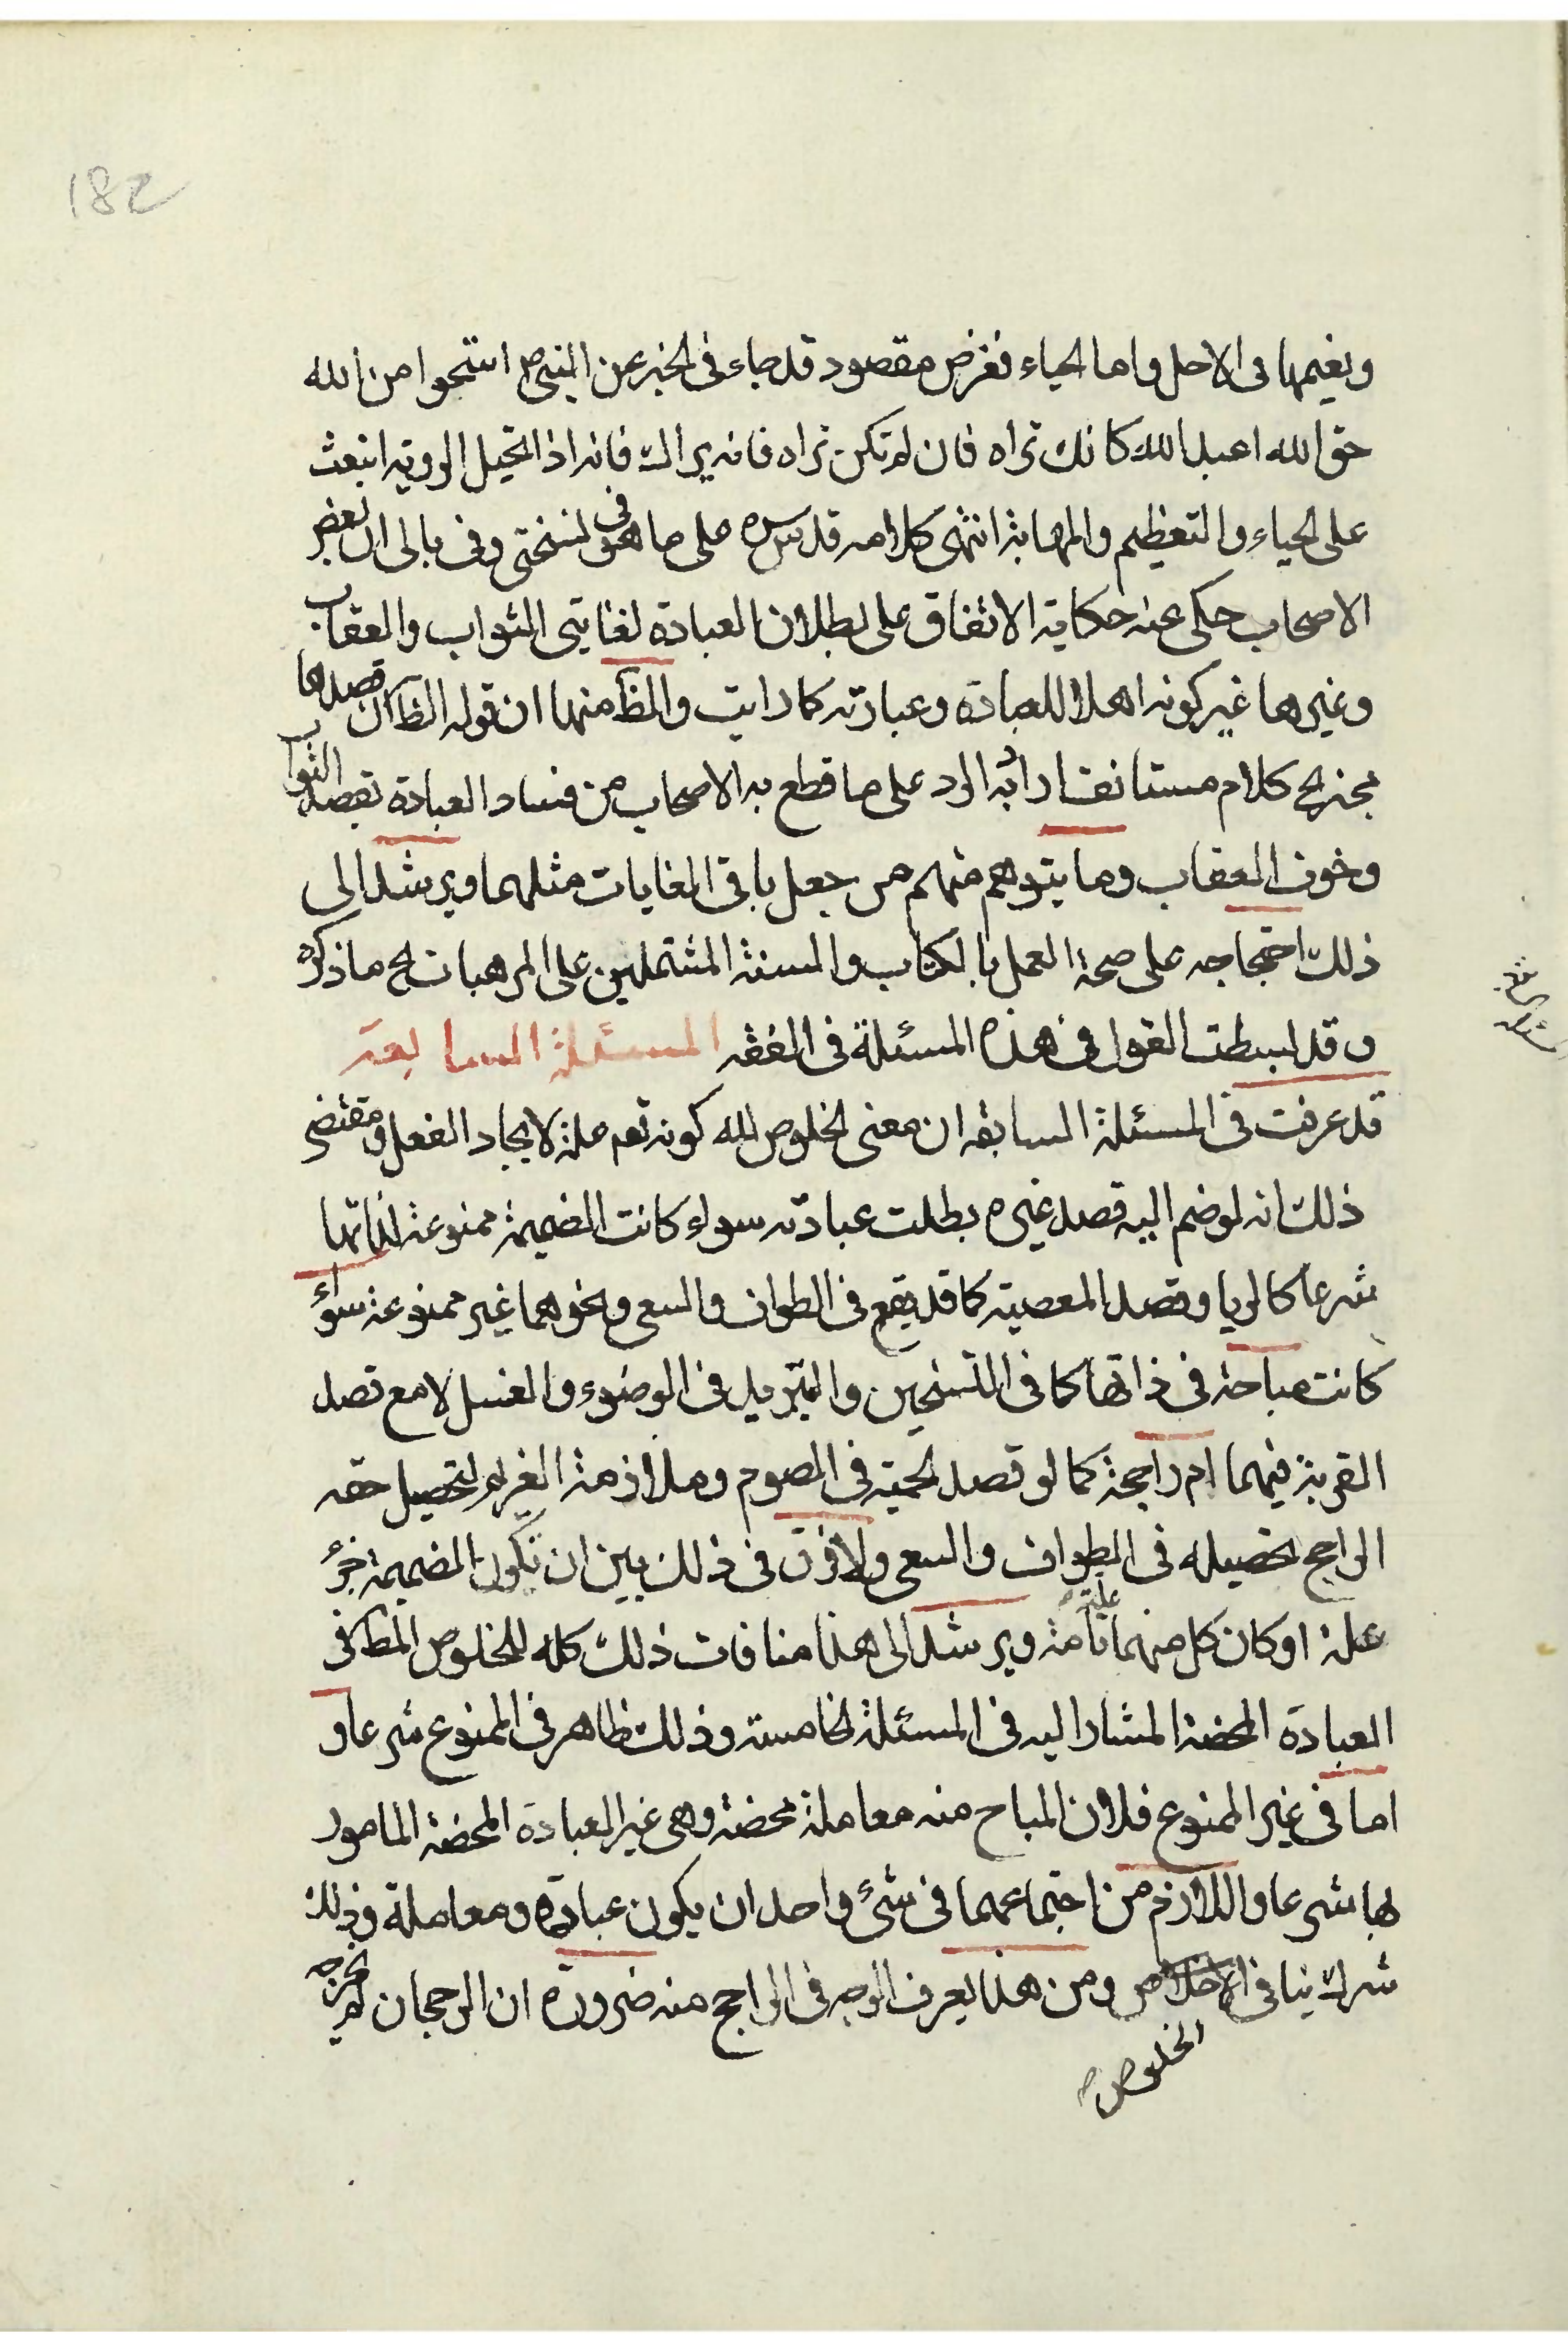 182
ونعيمها فى الاجل واما الحياء فغرض مقصود قد جاء فى الخبر عن النبى ص استحيوا من الله
حق الله اعبد الله كانك تراه فان لم تكن تراه فانه يراك فانه اذا تخيل الرؤية انبعث
على الحياء والتعظيم والمهابة انتهى كلامه قدس سره على ما هو فى نسختى وفى بالى ان بعض
الاصحاب حكى عنه حكاية الاتفاق على بطلان العبادة لغايتى الثواب والعقاب
وغيرها غير كونه اهلا للعبادة وعبارته كما رايت والظ منها ان قوله الظ ان قصدها
مجز الخ كلام مستانف اراد به الرد على ما قطع به الاصحاب من فساد العبادة بقصد الثواب
وخوف العقاب وما يتوهم منهم من جعل باقى الغايات مثلهما ويرشد الى
ذلك احتجاجه على صحة العمل بالكتاب والسنة المشتملين على المرهبات الخ ما ذكره
وقد بسطت القول فى هذه المسئلة فى الفقه المسئلة السابعة
قد عرفت فى المسئلة السابقة ان معنى الخلوص لله كونه تعم علة لايجاد الفعل ومقتضى
ذلك انه لو ضم اليه قصد غيره بطلت عبادته سواء كانت الضميمة ممنوعة لذاتها
شرعا كالريا وقصد المعصية كما قد يقع فى الطواف والسعى ونحوهما غير ممنوعة سواء
كانت مباحة فى ذاتها كما فى التسخين والتبريد فى الوضوء والغسل لا مع قصد
القربة فيهما ام راجحة كما لو قصد الحمية فى الصوم وملازمة الغريم لتحصيل حقه
الراجح تحصيله فى الطواف والسعى ولا فرق فى ذلك بين ان تكون الضميمة جزء
علة او كان كل منهما علة تامة ويرشد الى هذا منافات ذلك كله للخلوص المط فى
العبادة المحضة المشار اليه فى المسئلة الخامسة وذلك ظاهر فى الممنوع شرعا و
اما فى غير الممنوع فلان المباح منه معاملة محضة وهى غير العبادة المحضة المامور
بها شرعا واللازم من اجتماعهما فى شئ واحد ان يكون عبادة ومعاملة وذلك
شرك ينافى الاخلاص ومن هذا يعرف الوجه فى الراجح منه ضرورة ان الرجحان لم يخرجه
الخلوص